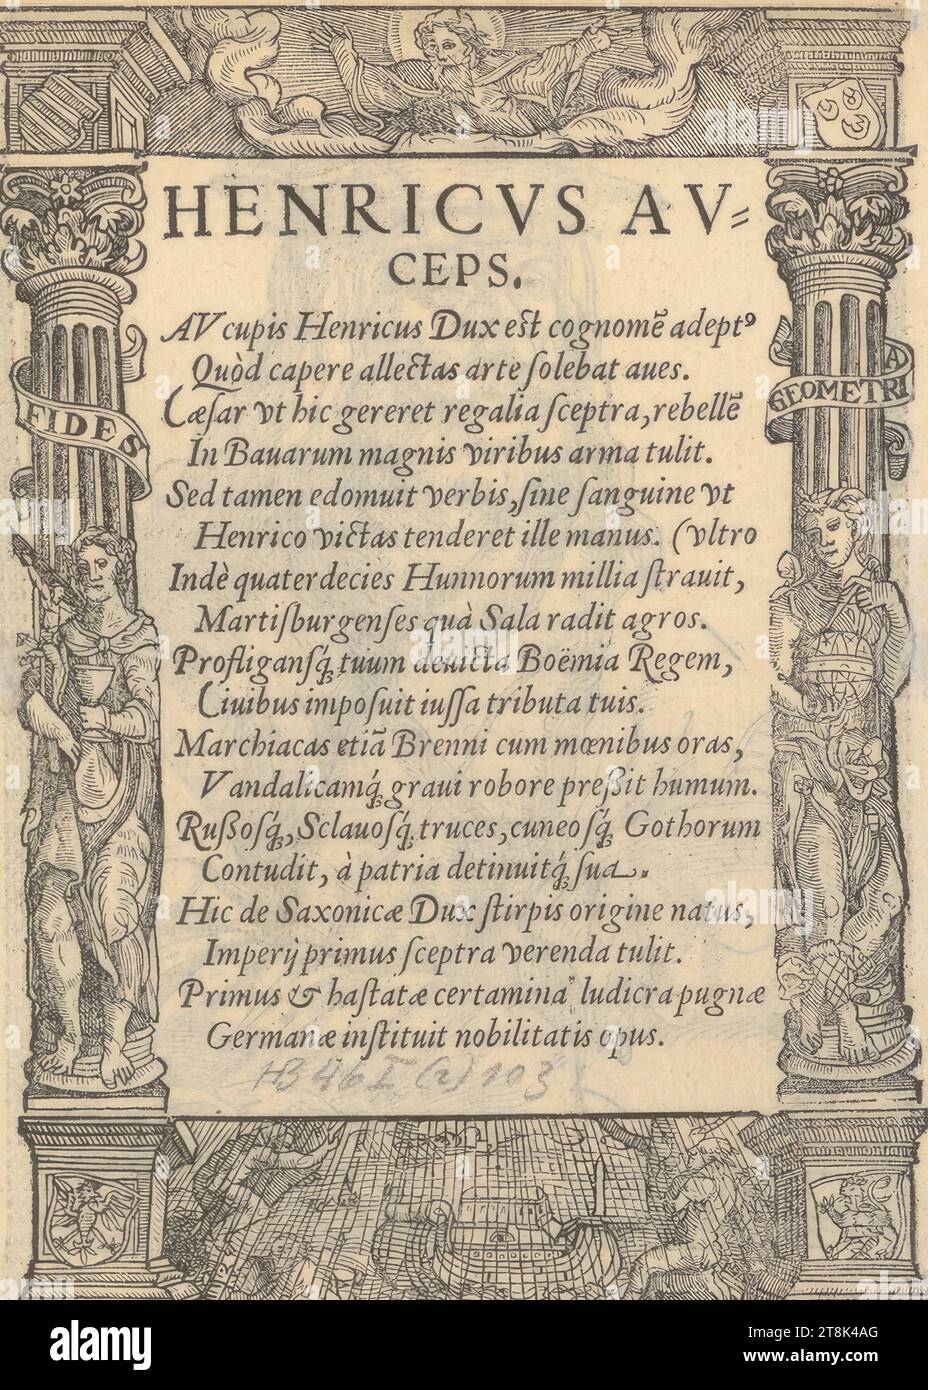 HENRICVS AV=
CEPS.
AVcupis Henricus Dux est cognomẽ adeptꝰ
Quòd capere allectas arte solebat aues.
Cæsar vt hic gereret regalia sceptra, rebellẽ
In Bauarum magnis viribus arma tulit.
Sed tamen edomuit verbis, sine sanguine vt
Henrico victas tenderet ille manus. (vltro
Indè quaterdecies Hunnorum millia strauit,
Martisburgenses quà Sala radit agros.
Profligansq́; tuum deuicta Boëmia Regem,
Ciuibus imposuit iussa tributa tuis.
Marchiacas etiã Brenni cum mœnibus oras,
Vandalicamq́; graui robore preßit humum.
Rußosq́;, Sclauosq́; truces, cuneosq́; Gothorum
Contudit, à patria detinuitq́; sua.
Hic de Saxonicæ Dux stirpis origine natus,
Imperij primus sceptra verenda tulit.
Primus & hastatæ certamina ludicra pugnæ
Germanæ instituit nobilitatis opus.
FIDES
GEOMETRI
A
alamy
Image ID: 2T8K4AG
www.alamy.com